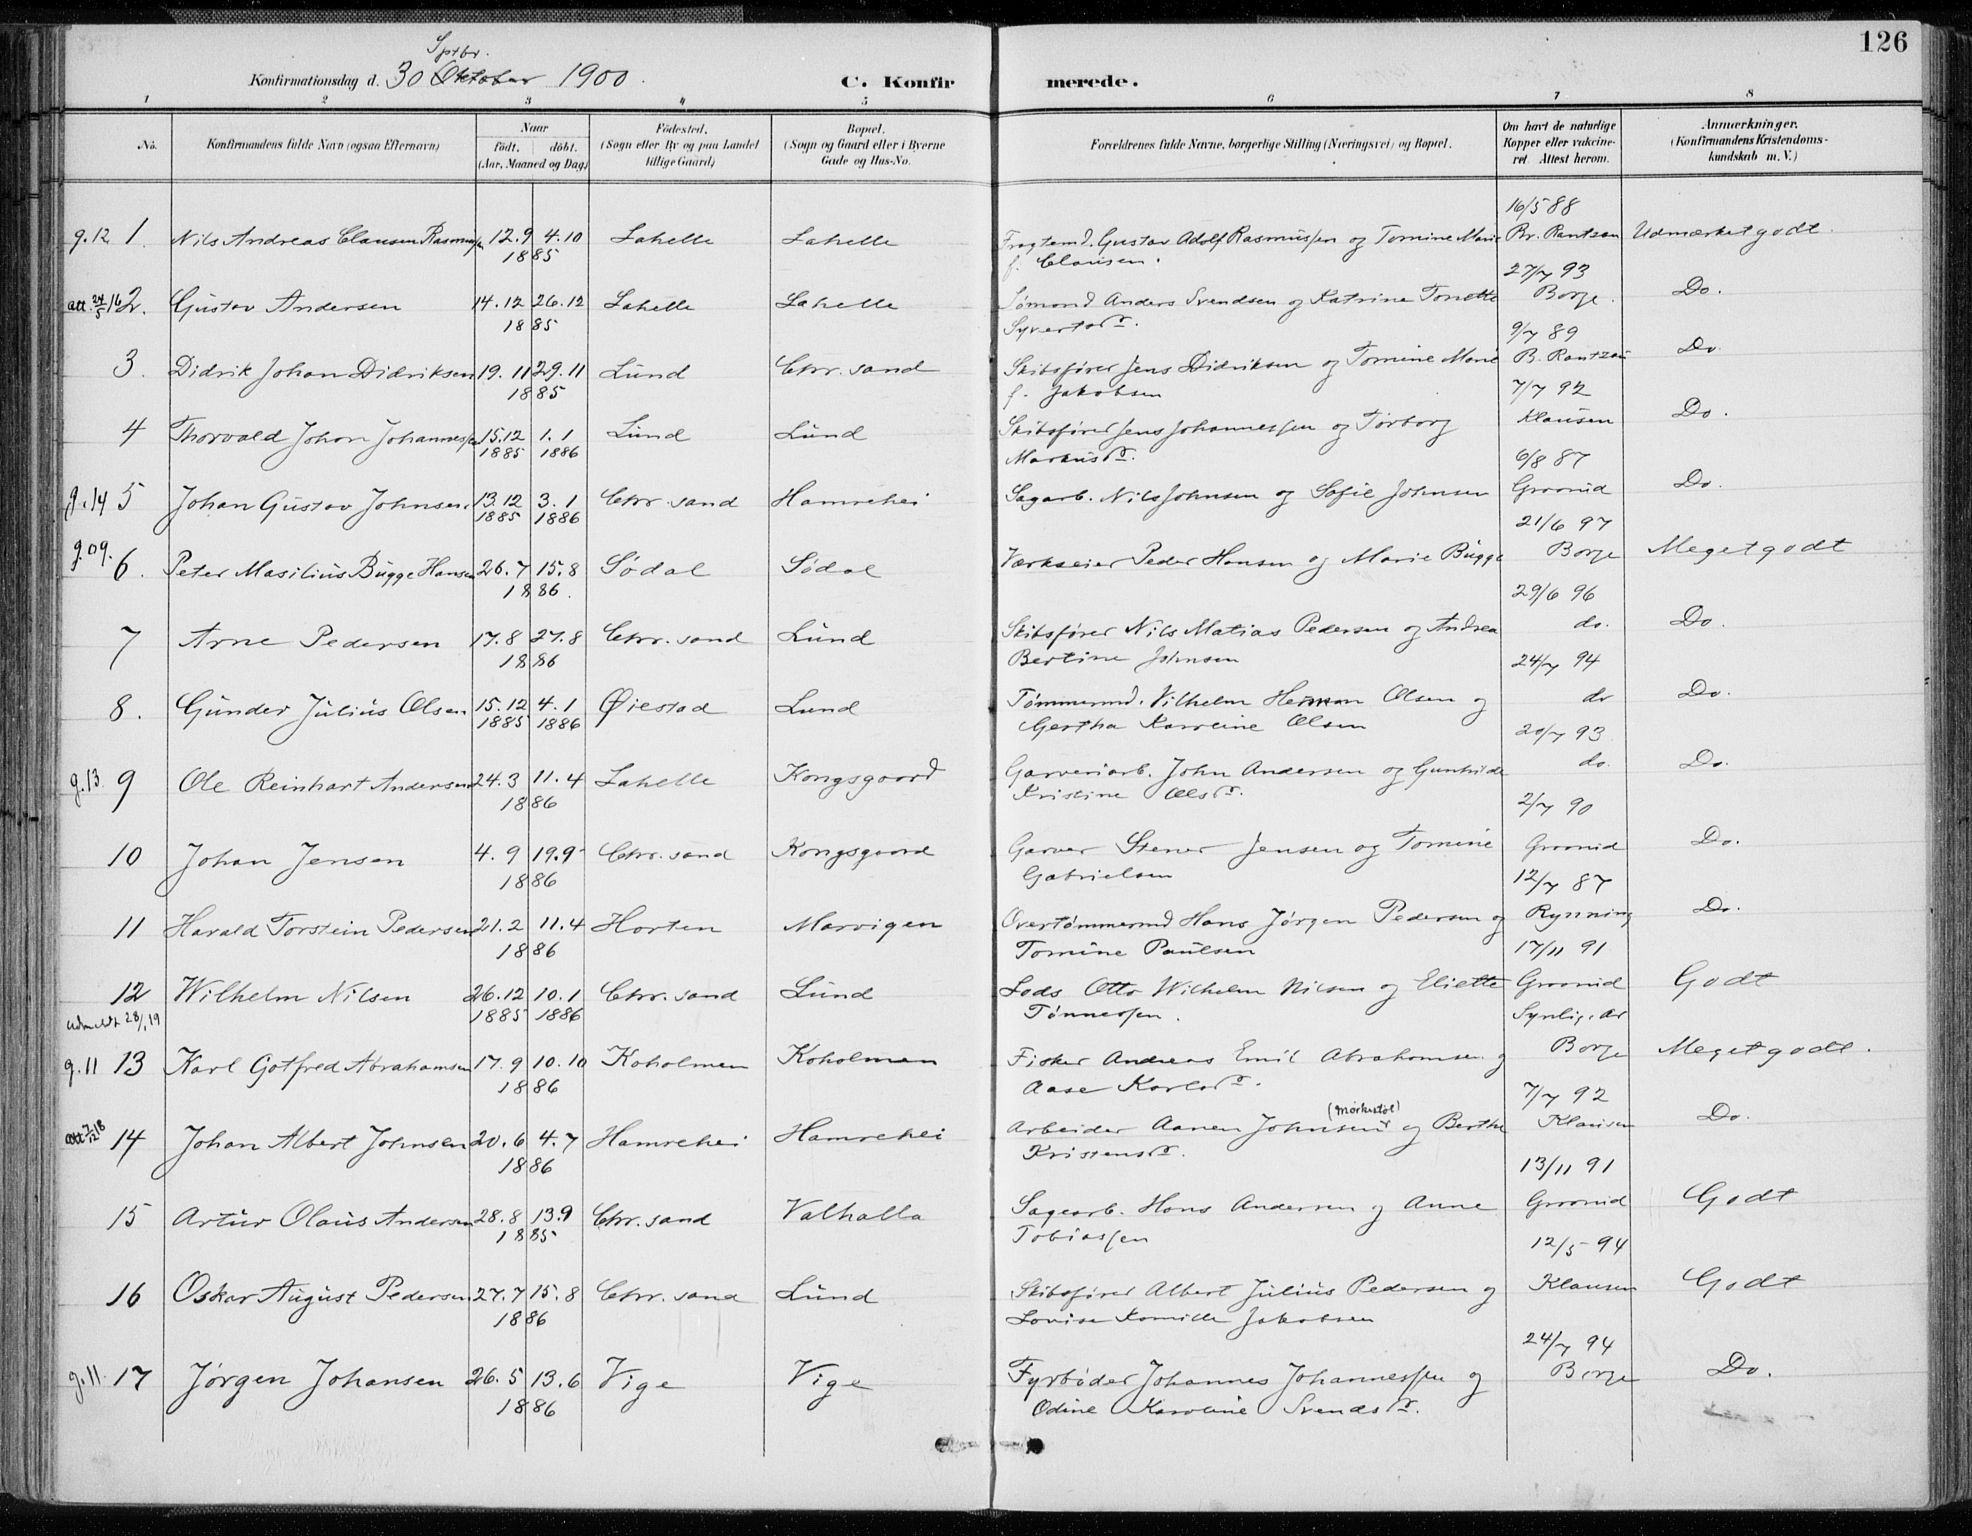 126
Sptbr.
Konfirmationsdag d. 30 Oktober 1900. C. Konfirmerede.
1 2 3 4 5 6 7 8
No. Konfirmandens fulde Navn (ogsaa Efternavn) Naar født. døbt. (Aar, Maaned og Dag) Fødested. (Sogn eller By og paa Landet tillige Gaard) Bopæl. (Sogn og Gaard eller i Byerne Gade og Hus-No. Forældrenes fulde Navne, borgerlige Stilling (Næringsvei) og Bopæl. Om havt de naturlige Kopper eller vakcineret. Attest herom. Anmærkninger. (Konfirmandens Kristendomskundskab m. V.)
16/5 88
g.12 1. Nils Andreas Clausen Rasmussen 12.9 4.10 Lahelle Lahelle Fragtemd. Gustav Adolf Rasmussen og Tomine Marie Br. Rantzau Udmærket godt.
1885 f. Clausen.
27/7 93
att. 24/5 16 2. Gustav Andersen 14.12 26.12 Lahelle Lahelle Sømand Anders Svendsen og Katrine Tonette Borge. Do.
1885 Syvertsdr.
9/7 89
3. Didrik Johan Didriksen 19.11 29.11 Lund Chr.sand Skibsfører Jens Didriksen og Tomine Marie B. Rantzau Do.
1885 f. Jakobsen
7/7 92
4 Thorvald Johan Johannessen 15.12 1.1 Lund Lund Skibsfører Jens Johannessen og Torborg Klausen Do.
1885 1886 Markusdr.
6/8 87
g.14 5 Johan Gustav Johnsen. 13.12 3.1 Chr.sand Hamrehei Sagarb. Nils Johnsen og Sofie Johnsen Groonid Do.
1885 1886
21/6 97
g.09. 6. Peter Masilius Bugge Hansen 26.7 15.8 Sødal Sødal Værkseier Peder Hansen og Marie Bugge Borge Meget godt
1886.
29/6 96
7 Arne Pedersen 17.8 27.8 Chr.sand Lund Skibsfører Nils Matias Pedersen og Andrea do. Do.
1886 Bertine Johnsen
24/7 94
8. Gunder Julius Olsen 15.12 4.1 Øiestad Lund Tømmermd. Vilhelm Herman Olsen og do Do.
1885 1886 Gertha Karoline Olsen
20/7 93
g.13 9 Ole Reinhart Andersen 24.3 11.4 Lahelle Kongsgaard Garveriarb. John Andersen og Gunhilde do. Do.
1886 Kristine Olsdr.
2/7 90
10 Johan Jensen 4.9 19.9 Chr.sand Kongsgaard Garver Stener Jensen og Tomine Groonid Do.
1886 Gabrielsen
12/7 87
11 Harald Torstein Pedersen 21.2 11.4 Horten Marvigen Overtømmermd Hans Jørgen Pedersen og Rynning Do.
1886 Tomine Paulsen
17/11 91
12 Wilhelm Nilsen 26.12 10.1 Chr.sand Lund Lods Otto Wilhelm Nilsen og Eliette Groonid Godt
udmeldt 28/1 19 1885 1886 Tønnessen.
Synlig. ar
g.11 13 Karl Gotfred Abrahamsen 17.9 10.10 Koholmen Koholmen Fisker Andreas Emil Abrahamsen og Borge Meget godt.
1886 Aase Karlsdr.
7/7 92
Att 7/12 18 14 Johan Albert Johnsen 20.6 4.7 Hamrehei Hamrehei Arbeider Aanen Johnsen (Mørkestøl) og Berthe Klausen Do.
1886 Kristensdr.
13/11 91
15 Artur Olaus Andersen 28.8 13.9 Chr.sand Valhalla Sagearb. Hans Andersen og Anne Groonid Godt
1885 Tobiassen
12/5 94
16 Oskar August Pedersen 27.7 15.8 Chr.sand Lund Skibsfører Albert Julius Pedersen og Klausen Godt
1886 Lovise Kamille Jakobsen
24/7 94
g.11. 17 Jørgen Johansen 26.5 13.6 Vige Vige Fyrbøder Johannes Johannessen og Borge Do.
1886 Odine Karoline Svendsdr.